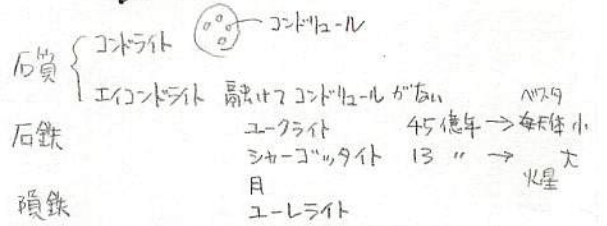 石質 コンドライト コンドリュール
エイコンドライト 融けてコンドリュールがない
ベスタ
石鉄 ユークライト 45億年→母天体 小
シャーゴッタイト 13 〃 → 大
火星
月
隕鉄 ユーレライト